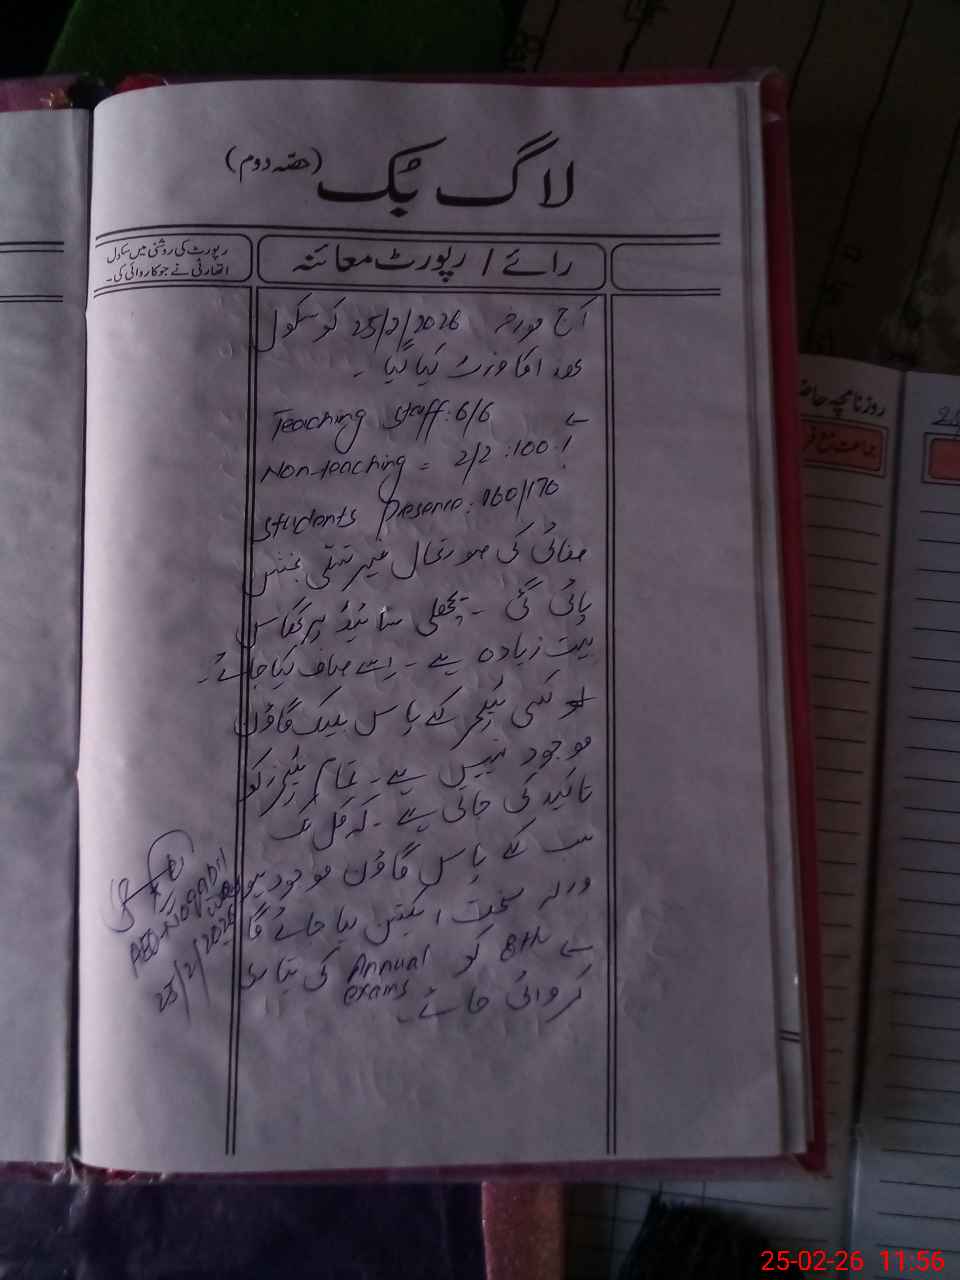 لاگ بُک (حصّہ دوم)
رائے / رپورٹ معائنہ
رپورٹ کی روشنی میں سکول
اتھارٹی نے جو کاروائی کی۔
آج مورخہ 25/2/2026 کو سکول
ھذا کا وزٹ کیا گیا۔
Teaching staff: 6/6
Non-teaching = 2/2 : 100%
Students Presence: 160/170
صفائی کی صورتحال غیر تسلی بخش
پائی گئی ۔ پچھلی سائیڈ پر گھاس
بہت زیادہ ہے ۔ اسے صاف کیا جائے۔
کسی ٹیچر کے پاس بلیک گاؤن
موجود نہیں ہے ۔ تمام ٹیچرز کو
تاکید کی جاتی ہے ۔ کہ کل تک
سب کے پاس گاؤن موجود ہو
ورنہ سخت ایکشن لیا جائے گا
8th کو Annual exams کی تیاری
کروائی جائے۔
AEO-
25/2/2026
روزنامچہ حاضر
جماعت مع فر
25-02-26 11:56